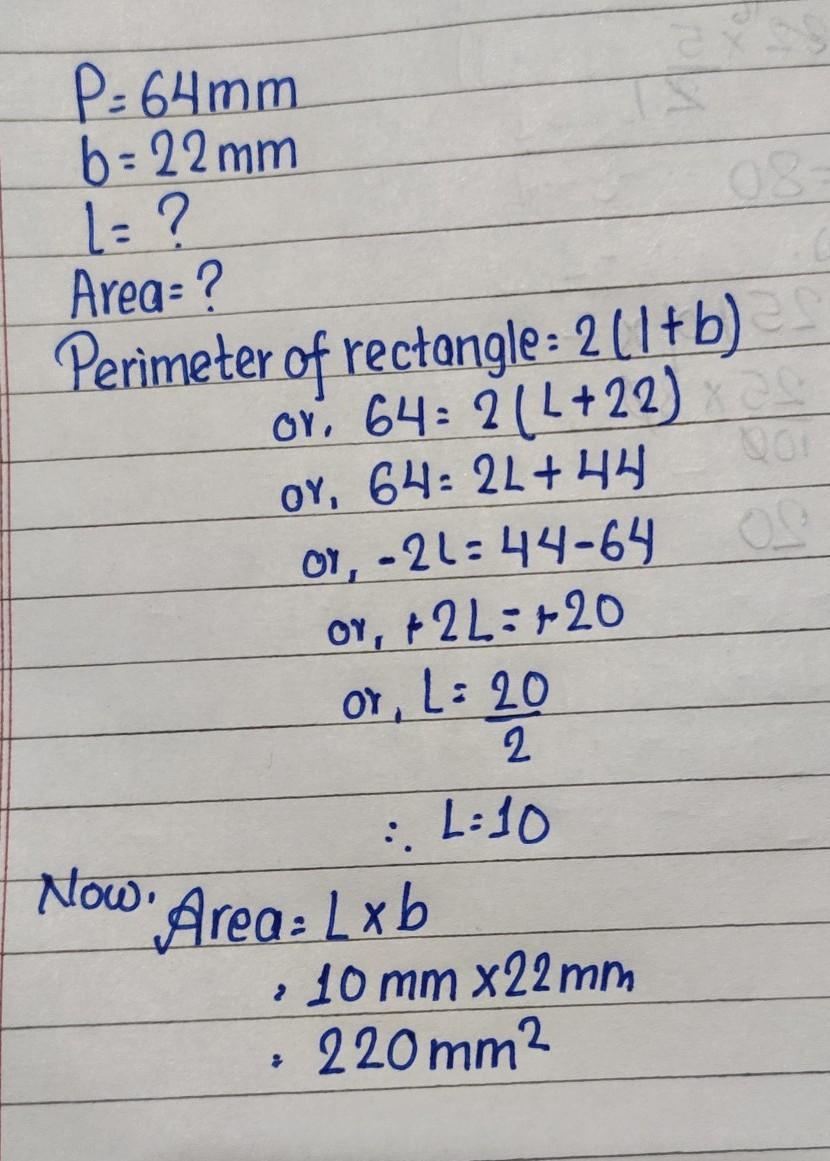 P=64mm
b=22mm
L= ?
Area=?
Perimeter of rectangle=2(l+b)
or, 64=2(L+22)
or, 64=2L+44
or, -2L=44-64
or, +2L=+20
or, L=20/2
∴ L=10
Now. Area=L×b
= 10mm×22mm
= 220mm²